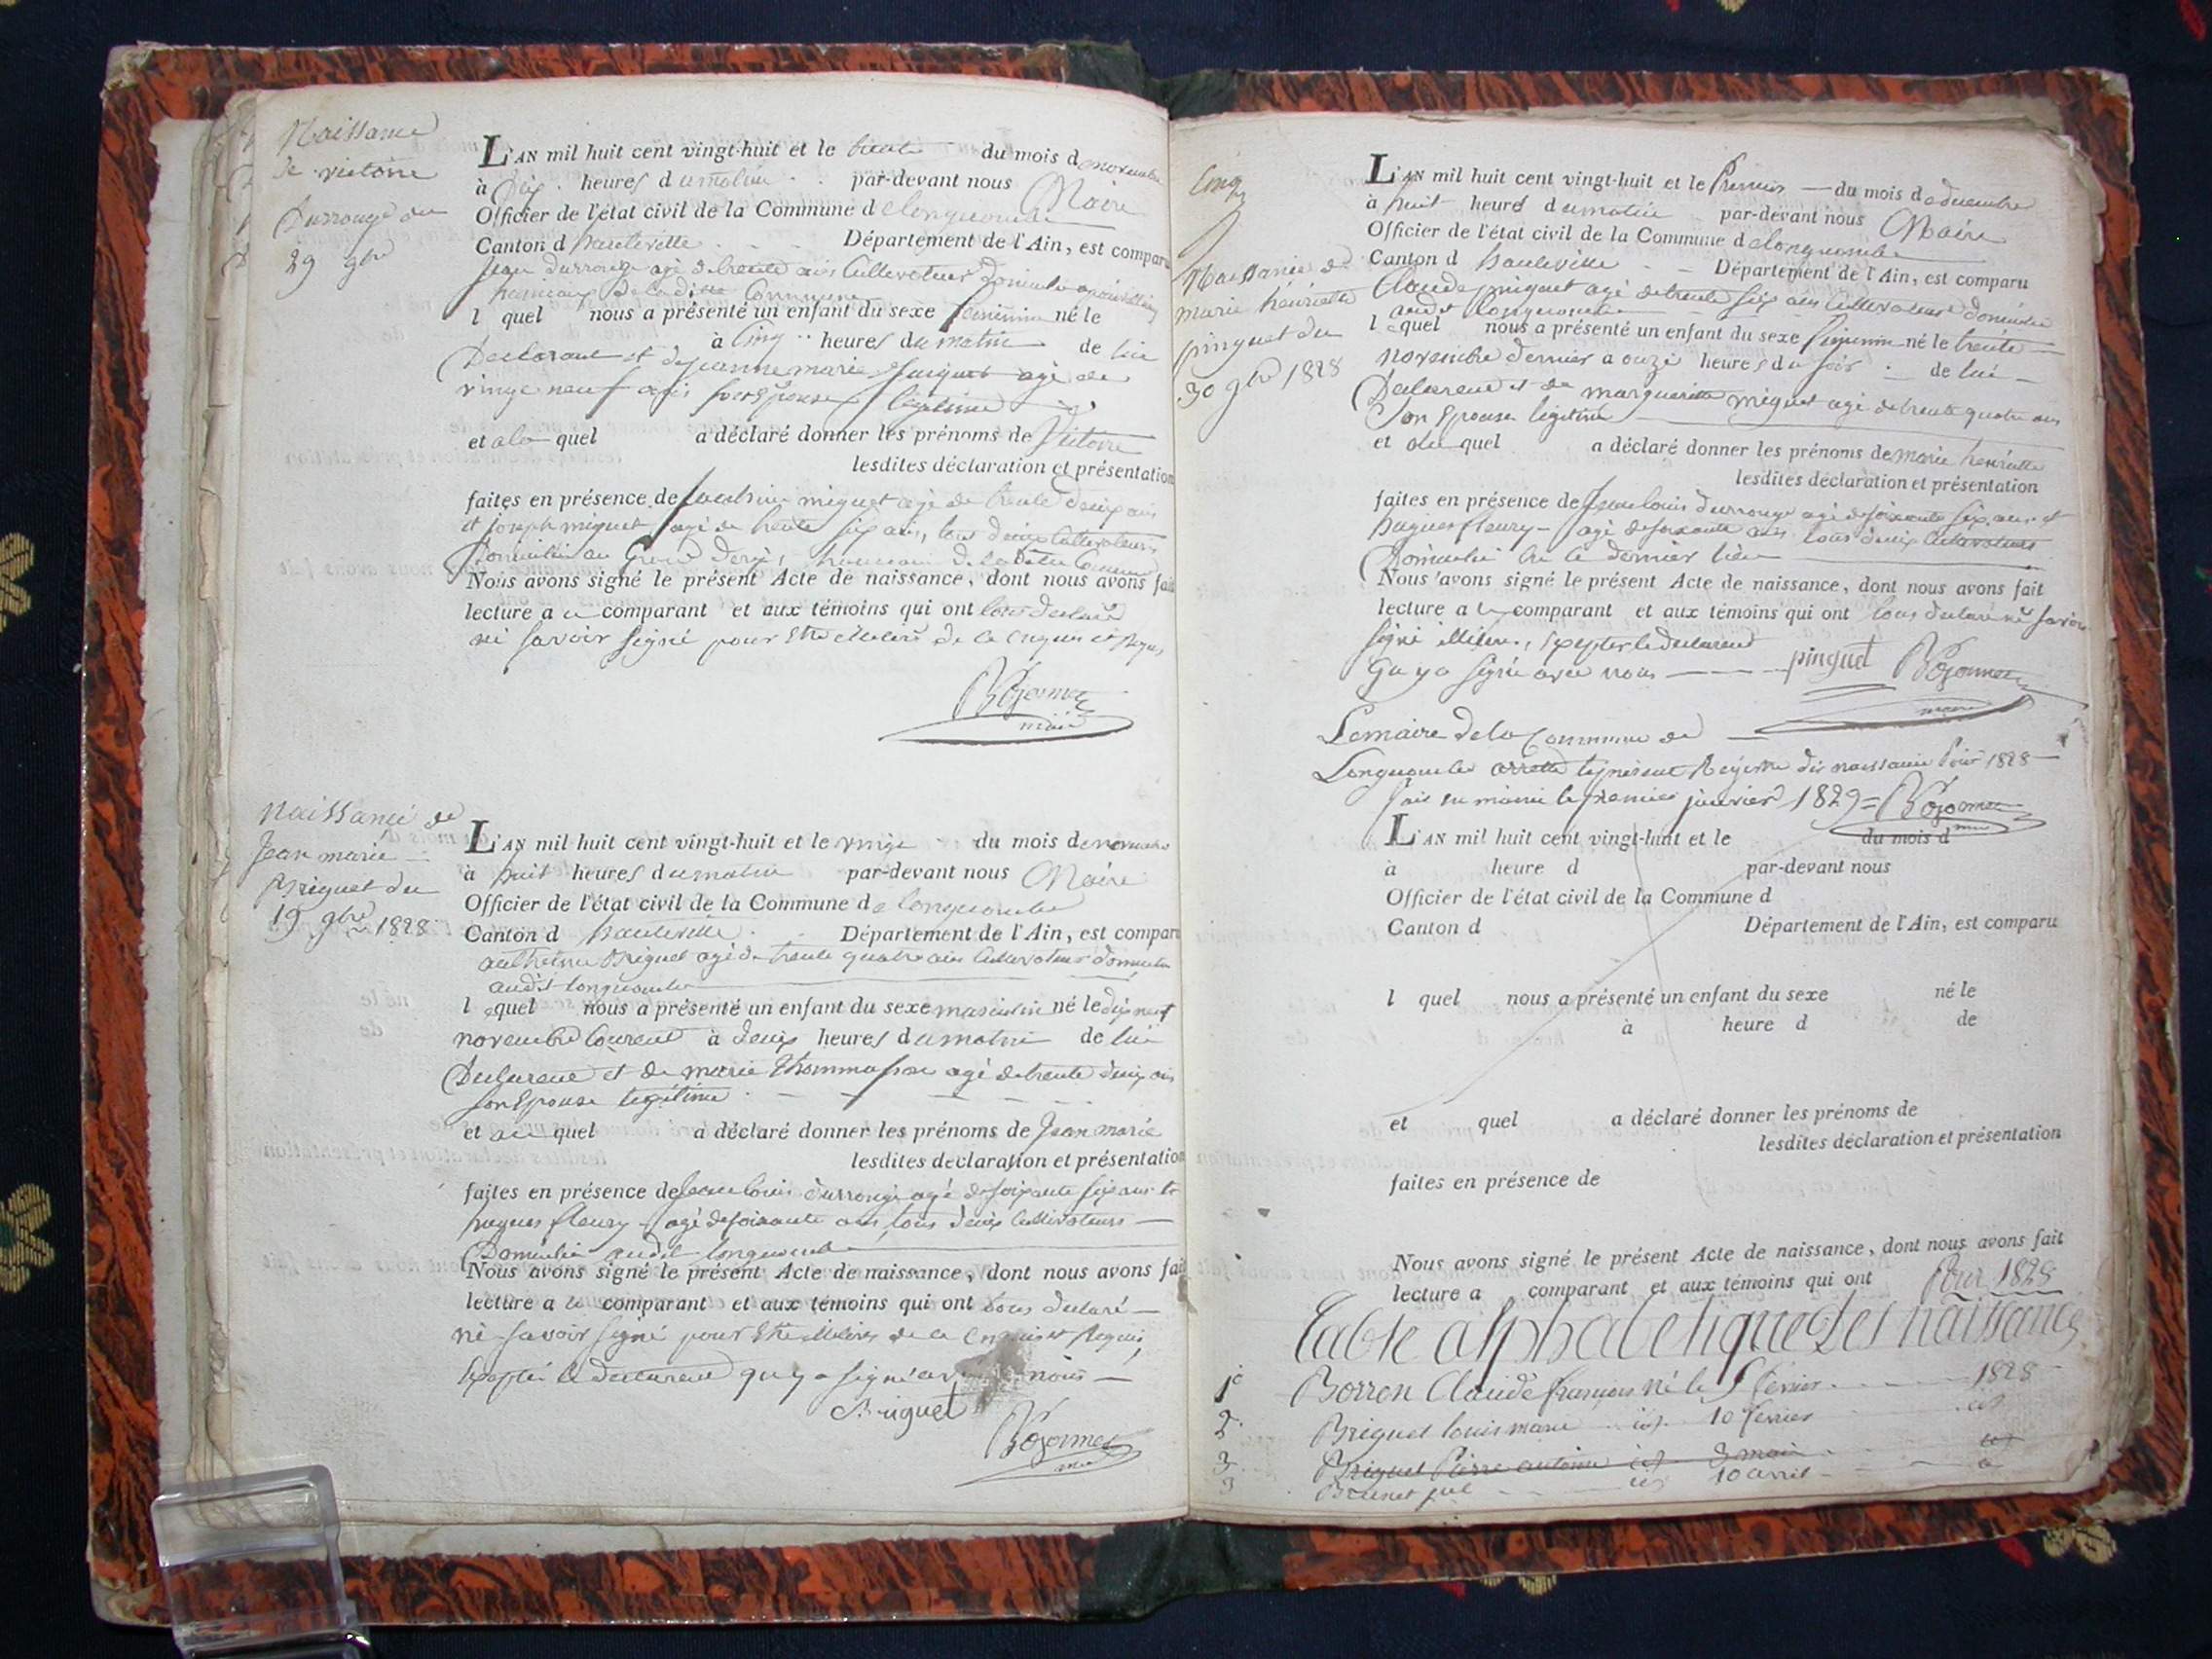 Naissance
de victoire
Durrouge du
29 9bre
L'AN mil huit cent vingt-huit et le trente du mois de novembre
à dix heures du matin par-devant nous Maire
Officier de l'état civil de la Commune de longecombe
Canton d hauteville Département de l'Ain, est comparu
Jean Durrouge agé de trente ans Cultivateur domicilié
hameau de la dite Commune
l quel nous a présenté un enfant du sexe feminin né le
à Cinq heures du matin de lui
Declarant et de jeanne marie agé de
vingt neuf ans son Epouse légitime
et a la quel a déclaré donner les prénoms de Victoire
lesdites déclaration et présentation
faites en présence de miguet agé de trente deux ans
et joseph miguet agé de trente six ans, tous deux Cultivateurs
Domicilié au hameau de la dite Commune
Nous avons signé le présent Acte de naissance, dont nous avons fait
lecture a ce comparant et aux témoins qui ont tous declaré
ne savoir signé pour Etre illiteré de ce enquis et Requis
Bozonnet
maire
Naissance de
Jean marie
Briguet du
19 9bre 1828
L'AN mil huit cent vingt-huit et le vingt du mois de novembre
à huit heures du matin par-devant nous Maire
Officier de l'état civil de la Commune de longecombe
Canton d hauteville Département de l'Ain, est comparu
anthelme Briguet agé de trente quatre ans Cultivateur domicilié
audit longecombe
l equel nous a présenté un enfant du sexe masculin né le dix neuf
novembre Courent à deux heures du matin de lui
Declarant et de marie Thommasson agé de trente deux ans
son Epouse legitime
et au quel a déclaré donner les prénoms de Jean marie
lesdites déclaration et présentation
faites en présence de Jean louis durrouge agé de soixante six ans et
hugues fleury agé de soixante ans, tous deux Cultivateurs
Domicilié audit longecombe
Nous avons signé le présent Acte de naissance, dont nous avons fait
lecture a le comparant et aux témoins qui ont tous declaré
ne savoir signé pour Etre illiteré de ce enquis et Requis,
Excepté le declarent qui y a signé avec nous
Briguet
Bozonnet
maire
Naissance de
marie henriette
pinguet du
30 9bre 1828
L'AN mil huit cent vingt-huit et le Premier du mois de decembre
à huit heures du matin par-devant nous Maire
Officier de l'état civil de la Commune de longecombe
Canton d hauteville Département de l'Ain, est comparu
Claude pinguet agé de trente six ans Cultivateur domicilié
audit longecombe
l equel nous a présenté un enfant du sexe feminin né le trente
novembre dernier à onze heures du soir de lui
Declarent et de marguerite miguet agé de trente quatre ans
Son Epouse legitime
et a la quel a déclaré donner les prénoms de marie henriette
lesdites déclaration et présentation
faites en présence de Jean louis durrouge agé de soixante six ans et
hugues fleury agé de soixante ans tous deux Cultivateurs
Domicilié le dernier lieu
Nous avons signé le présent Acte de naissance, dont nous avons fait
lecture a le comparant et aux témoins qui ont tous declaré ne savoir
signé illiteré, Excepter le declarent
qui y a signé avec nous pinguet Bozonnet
maire
Le maire de la Commune de
Longecombe arrette le present Registre des naissance Pour 1828
fait en mairie le premier janvier 1829 = Bozonnet
L'AN mil huit cent vingt-huit et le du mois d
à heure d par-devant nous
Officier de l'état civil de la Commune d
Canton d Département de l'Ain, est comparu
l quel nous a présenté un enfant du sexe né le
à heure d de
et quel a déclaré donner les prénoms de
lesdites déclaration et présentation
faites en présence de
Nous avons signé le présent Acte de naissance, dont nous avons fait
lecture a comparant et aux témoins qui ont Pour 1828
Table alphabetique Des naissances
1e Borron Claude françois né le 5 fevrier 1828
2. Briguet louis marie id. 10 fevrier id
3. Briguet Pierre antoine id 3 mars id
3 Brunet id 10 avril